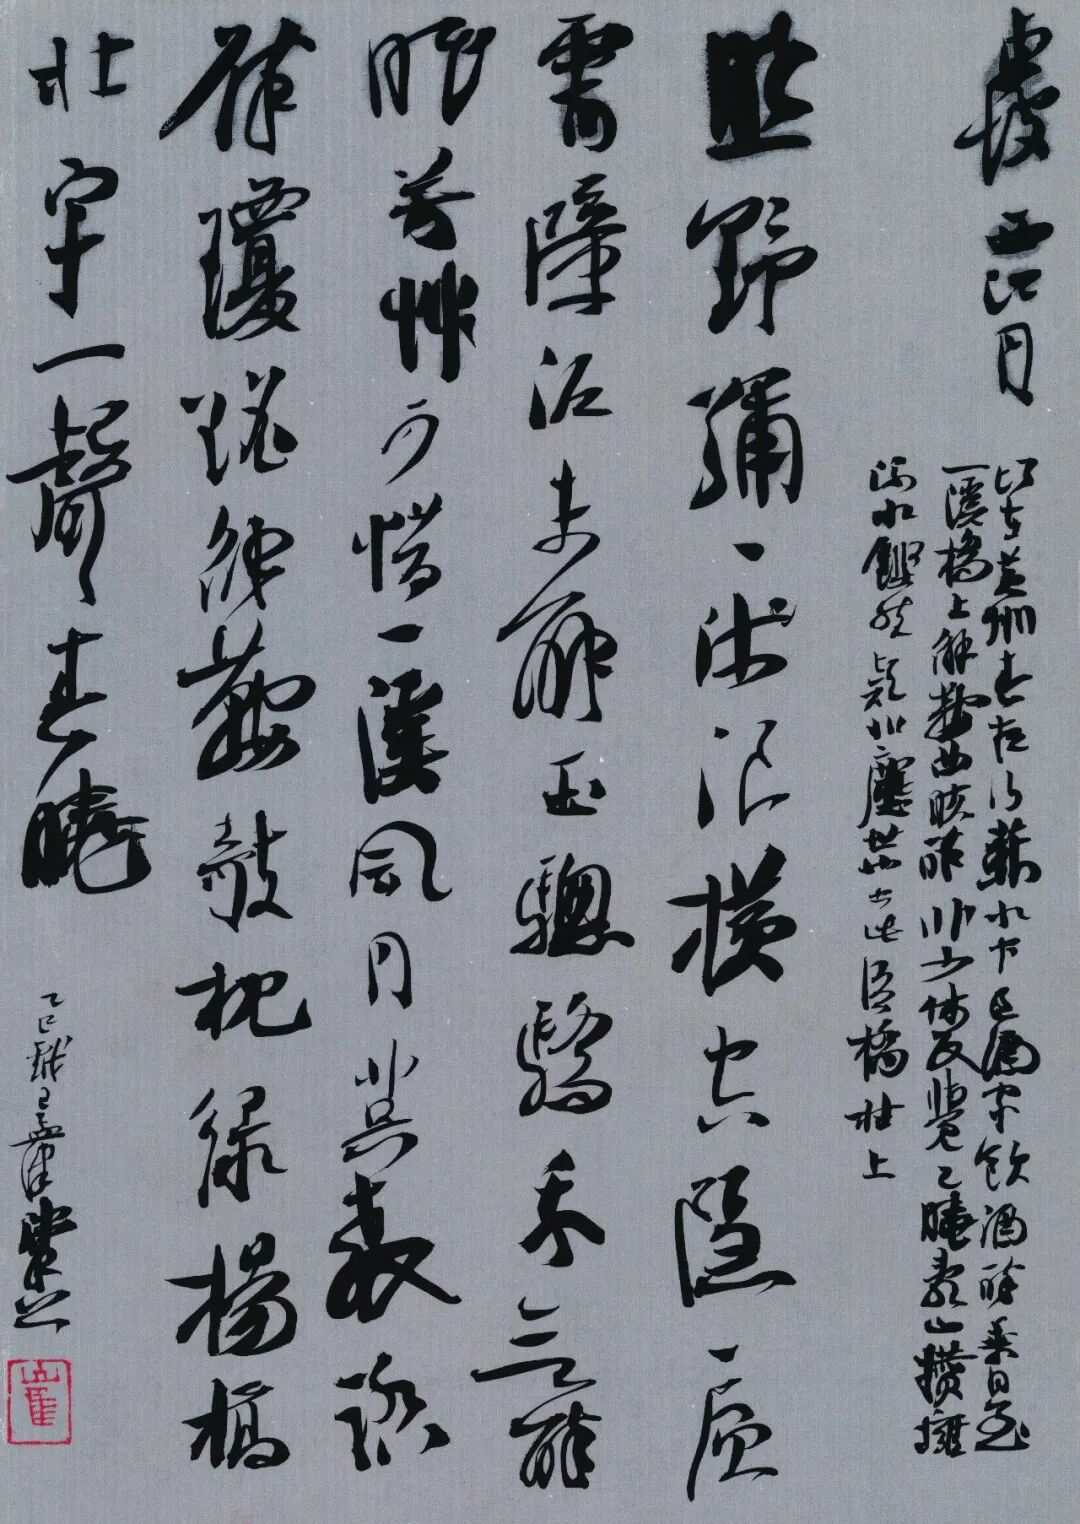 西江月
頃在黃州春夜行蘄水中過酒家飲酒醉乘月至
一溪橋上解鞍曲肱醉臥少休及覺已曉亂山攢擁
流水鏗然疑非塵世也書此語橋柱上
照野彌〻淺浪橫空隱〻層
霄障泥未解玉驄驕我欲醉
眠芳草可惜一溪風月莫教踏
碎瓊瑤解鞍欹枕綠楊橋
杜宇一聲春曉
乙巳孟津